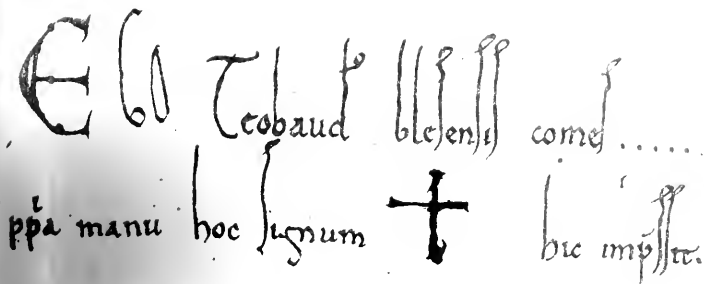 EGO Teobaud blesensis comes ......
ppⁱa manu hoc signum ✝ hic imp̄ssit.